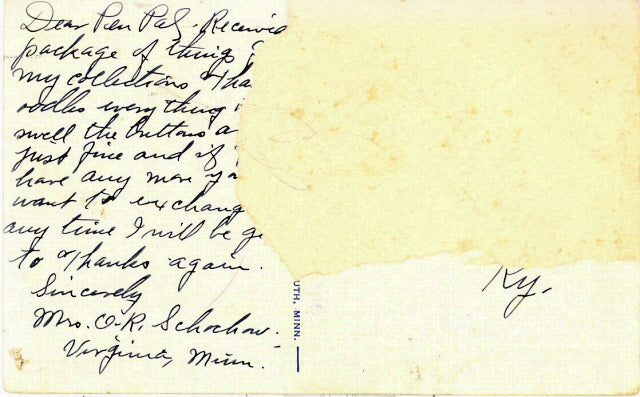 Dear Pen Pal - Receive
package of things
my collections Tha
oodles everything i
swell the Buttons a
just fine and if
have any more yo
want to exchang
any time I will be g
to Thanks again.
Sincerely
Mrs. O.R. Schochow.
Virginia, Minn.
UTH, MINN.
Ky.